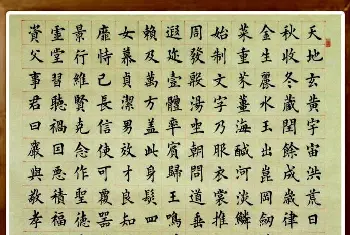 天地玄黃宇宙洪荒日
秋收冬藏閏餘成歲律
金生麗水玉出崑岡劍
菜重芥薑海鹹河淡鱗
始制文字乃服衣裳推
周發殷湯坐朝問道垂
遐邇壹體率賓歸王鳴
賴及萬方蓋此身髮四
女慕貞潔男效才良知
靡恃己長信使可覆器
景行維賢克念作聖德
虛堂習聽禍因惡積福
資父事君曰嚴與敬孝